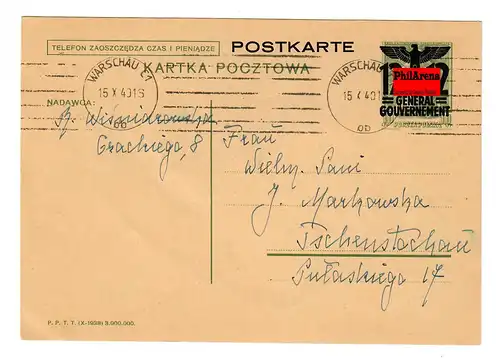 TELEFON ZAOSZCZĘDZA CZAS I PIENIĄDZE
POSTKARTE
KARTKA POCZTOWA
WARSCHAU C1
15 X 40 16
ob
WARSCHAU
15 X 40 1
ob
12
PhilArena
GENERAL
GOUVERNEMENT
NADAWCA:
B. Wiśniakowska
Grackiego, 8
Frau
Wielm. Pani
J. Markowska
Tschenstochau
Pułaskiego 17
P. P. T. T. (X-1938) 3.000.000.